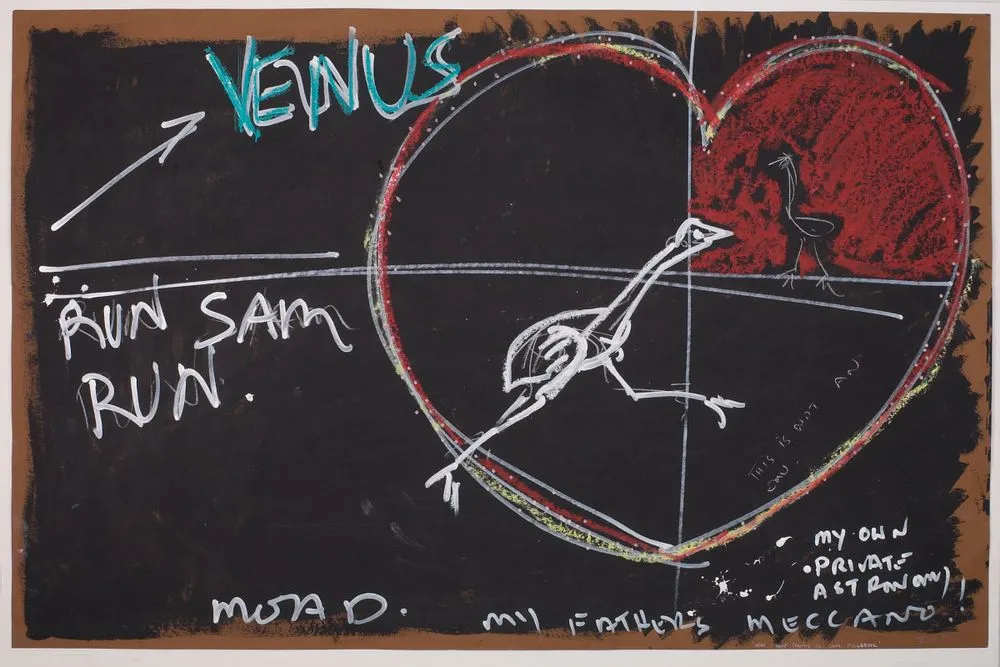 VENUS
RUN SAM
RUN.
THIS IS NOT AN
EMU
MY OWN
PRIVATE
ASTRONOMY!
MOTA D.
MY FATHER'S MECCANO.